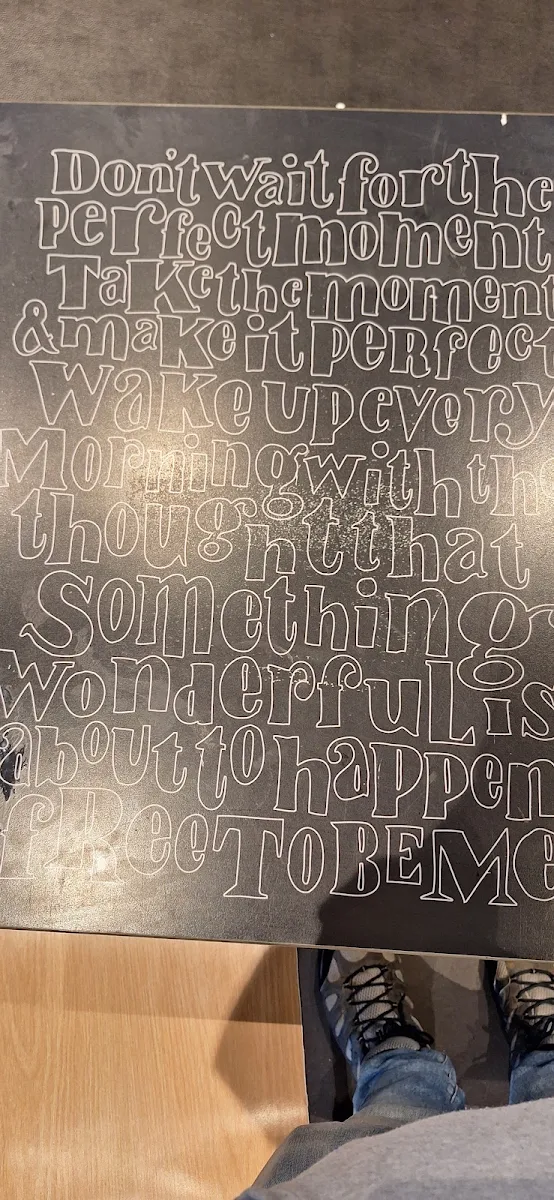 Don't wait for the
perfect moment
Take the moment
& make it perfect
Wake up every
Morning with the
thought that
Something
Wonderful is
about to happen
fRee TO BE ME